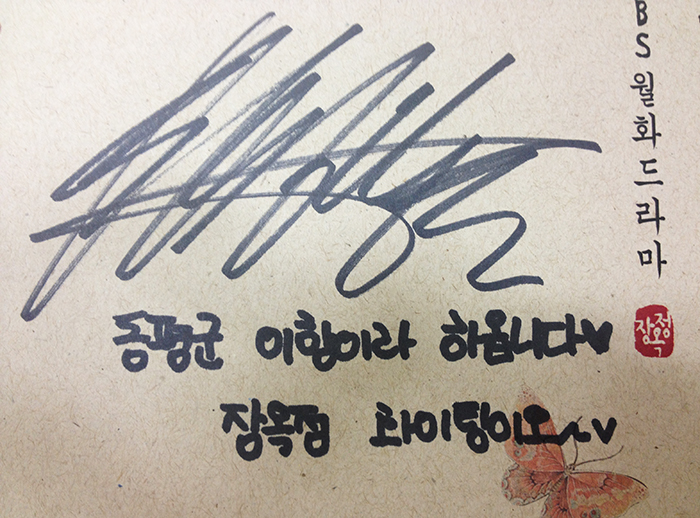 BS월화드라마
장옥정
동평군 이항이라 하옵니다♥
장옥정 화이팅이오~♥